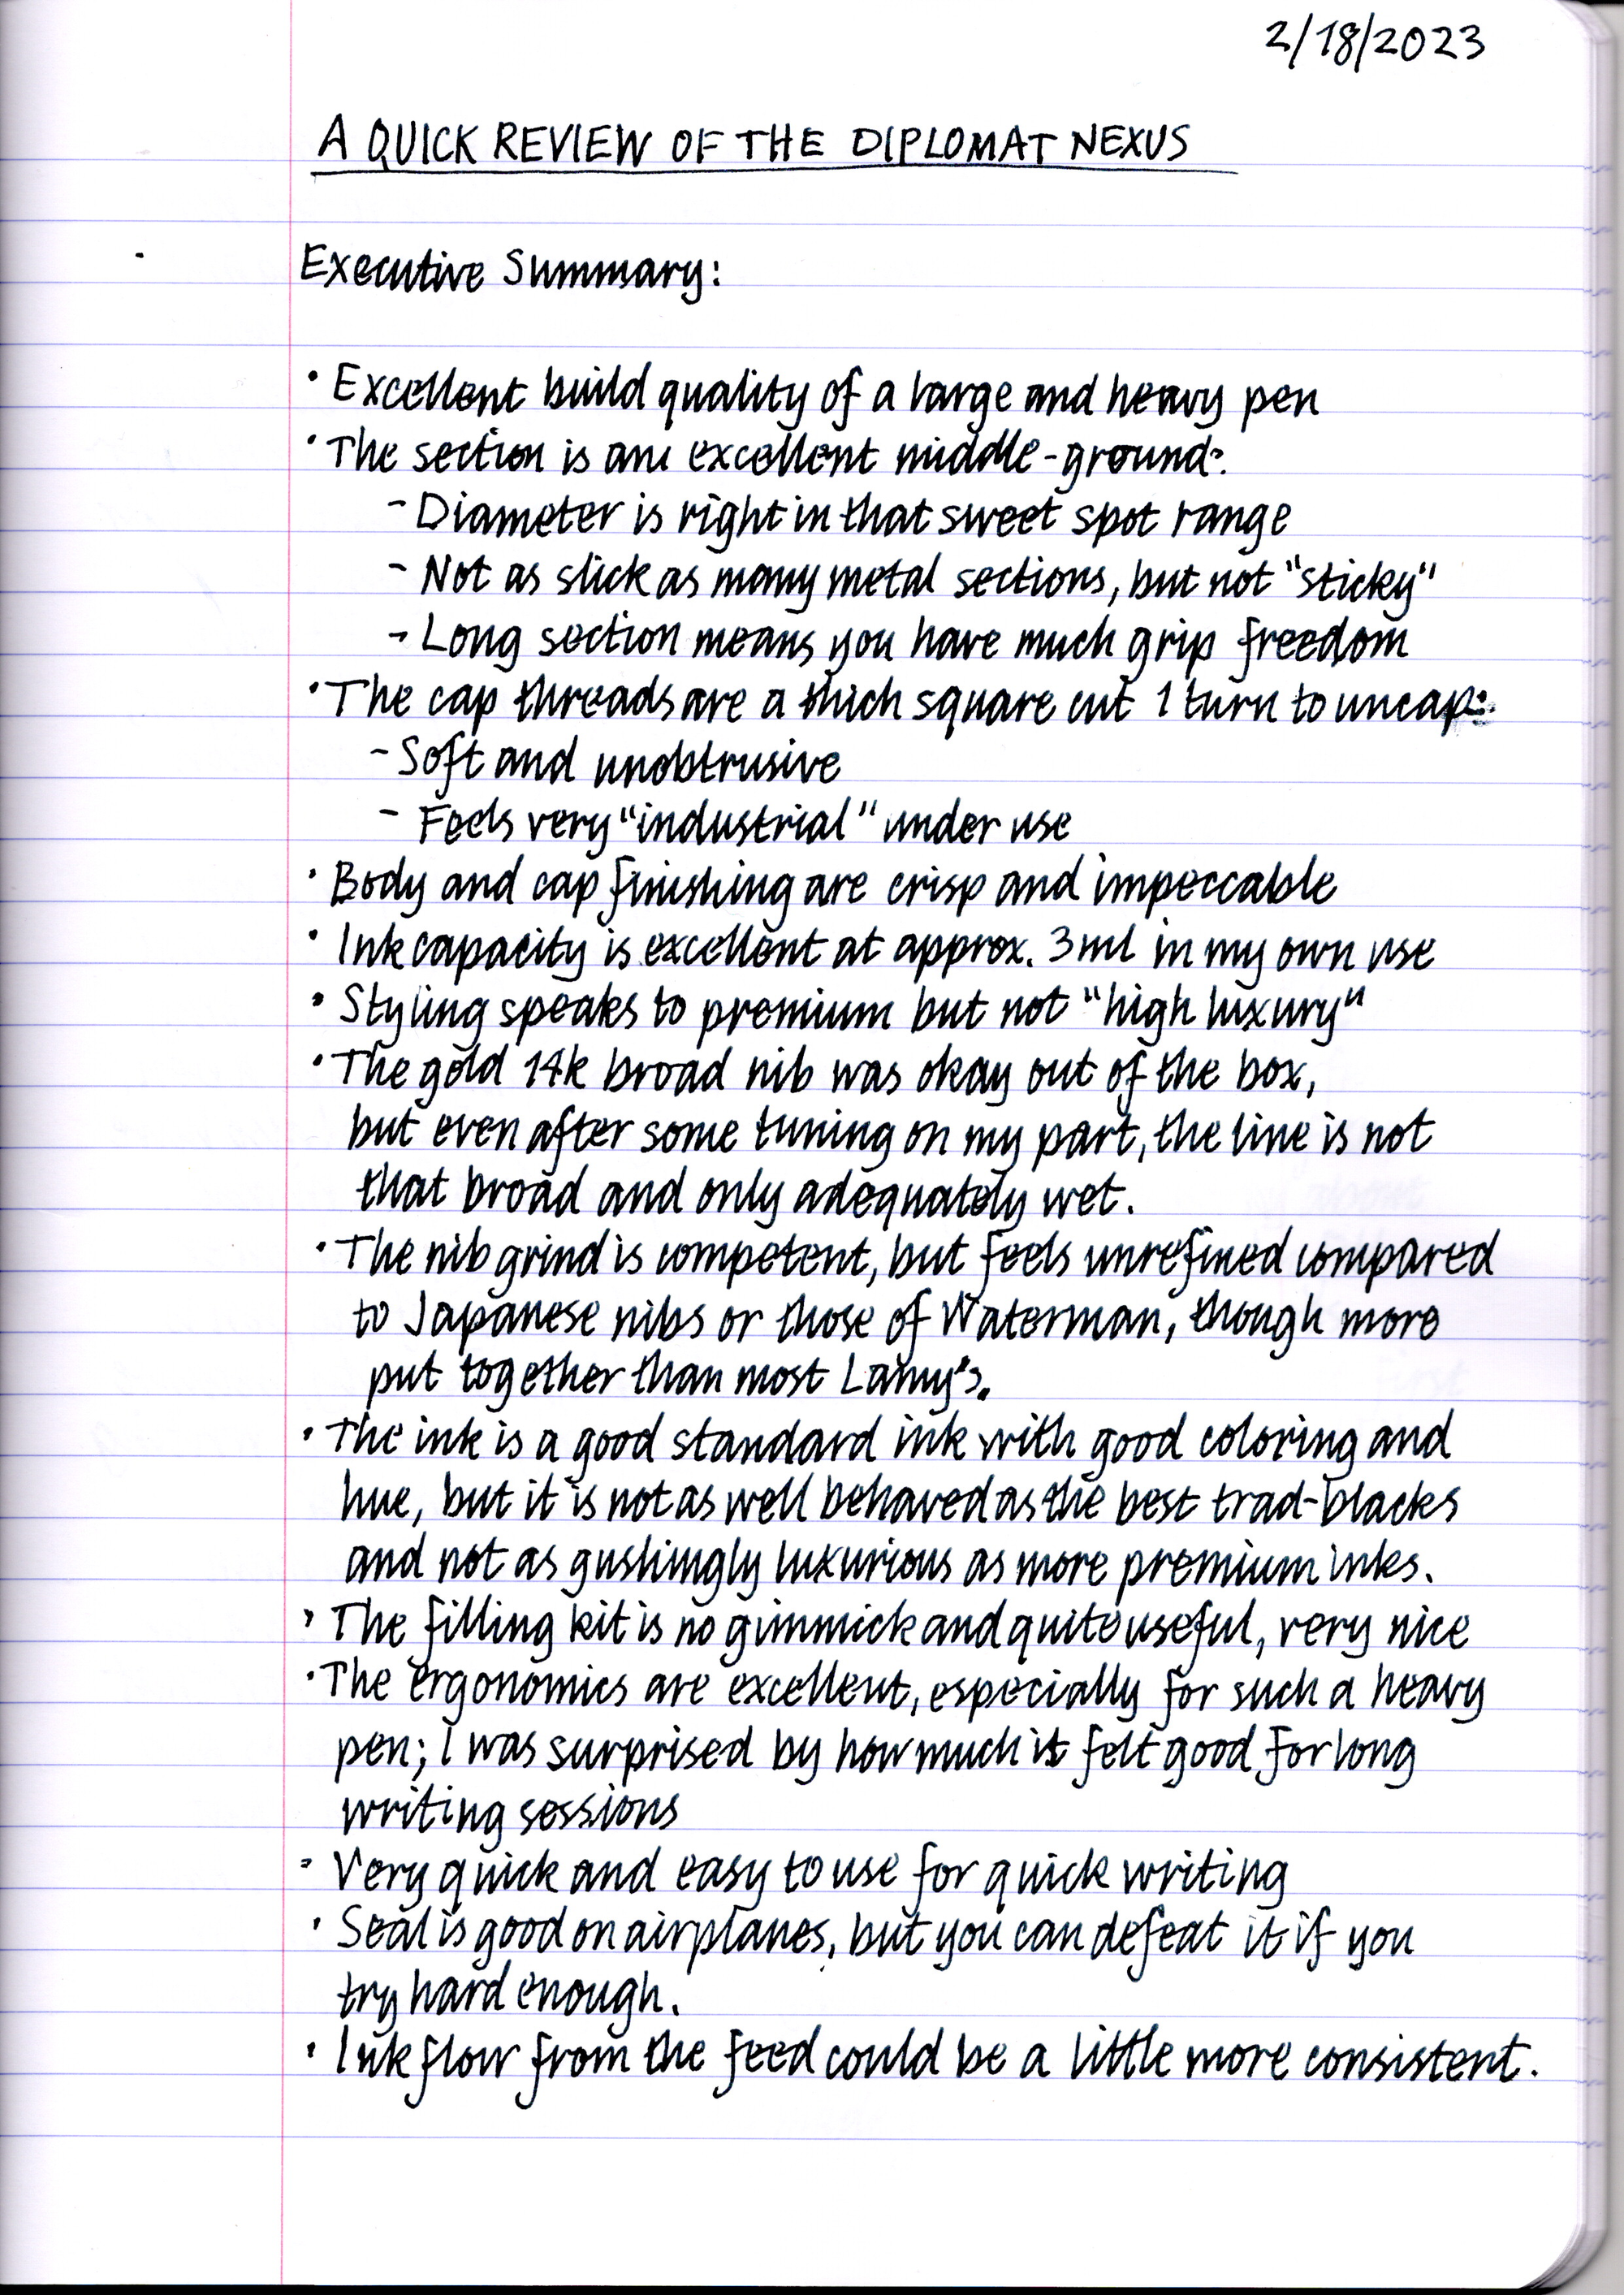 2/18/2023
A QUICK REVIEW OF THE DIPLOMAT NEXUS
Executive Summary:
· Excellent build quality of a large and heavy pen
· The section is an excellent middle-ground:
- Diameter is right in that sweet spot range
- Not as slick as many metal sections, but not "sticky"
- Long section means you have much grip freedom
· The cap threads are a thick square cut 1 turn to uncap:
- Soft and unobtrusive
- Feels very "industrial" under use
· Body and cap finishing are crisp and impeccable
· Ink capacity is excellent at approx. 3ml in my own use
· Styling speaks to premium but not "high luxury"
· The gold 14k broad nib was okay out of the box,
but even after some tuning on my part, the line is not
that broad and only adequately wet.
· The nib grind is competent, but feels unrefined compared
to Japanese nibs or those of Waterman, though more
put together than most Lamy's.
· The ink is a good standard ink with good coloring and
hue, but it is not as well behaved as the best trad-blacks
and not as gushingly luxurious as more premium inks.
· The filling kit is no gimmick and quite useful, very nice
· The ergonomics are excellent, especially for such a heavy
pen; I was surprised by how much it felt good for long
writing sessions
· Very quick and easy to use for quick writing
· Seal is good on airplanes, but you can defeat it if you
try hard enough.
· Ink flow from the feed could be a little more consistent.